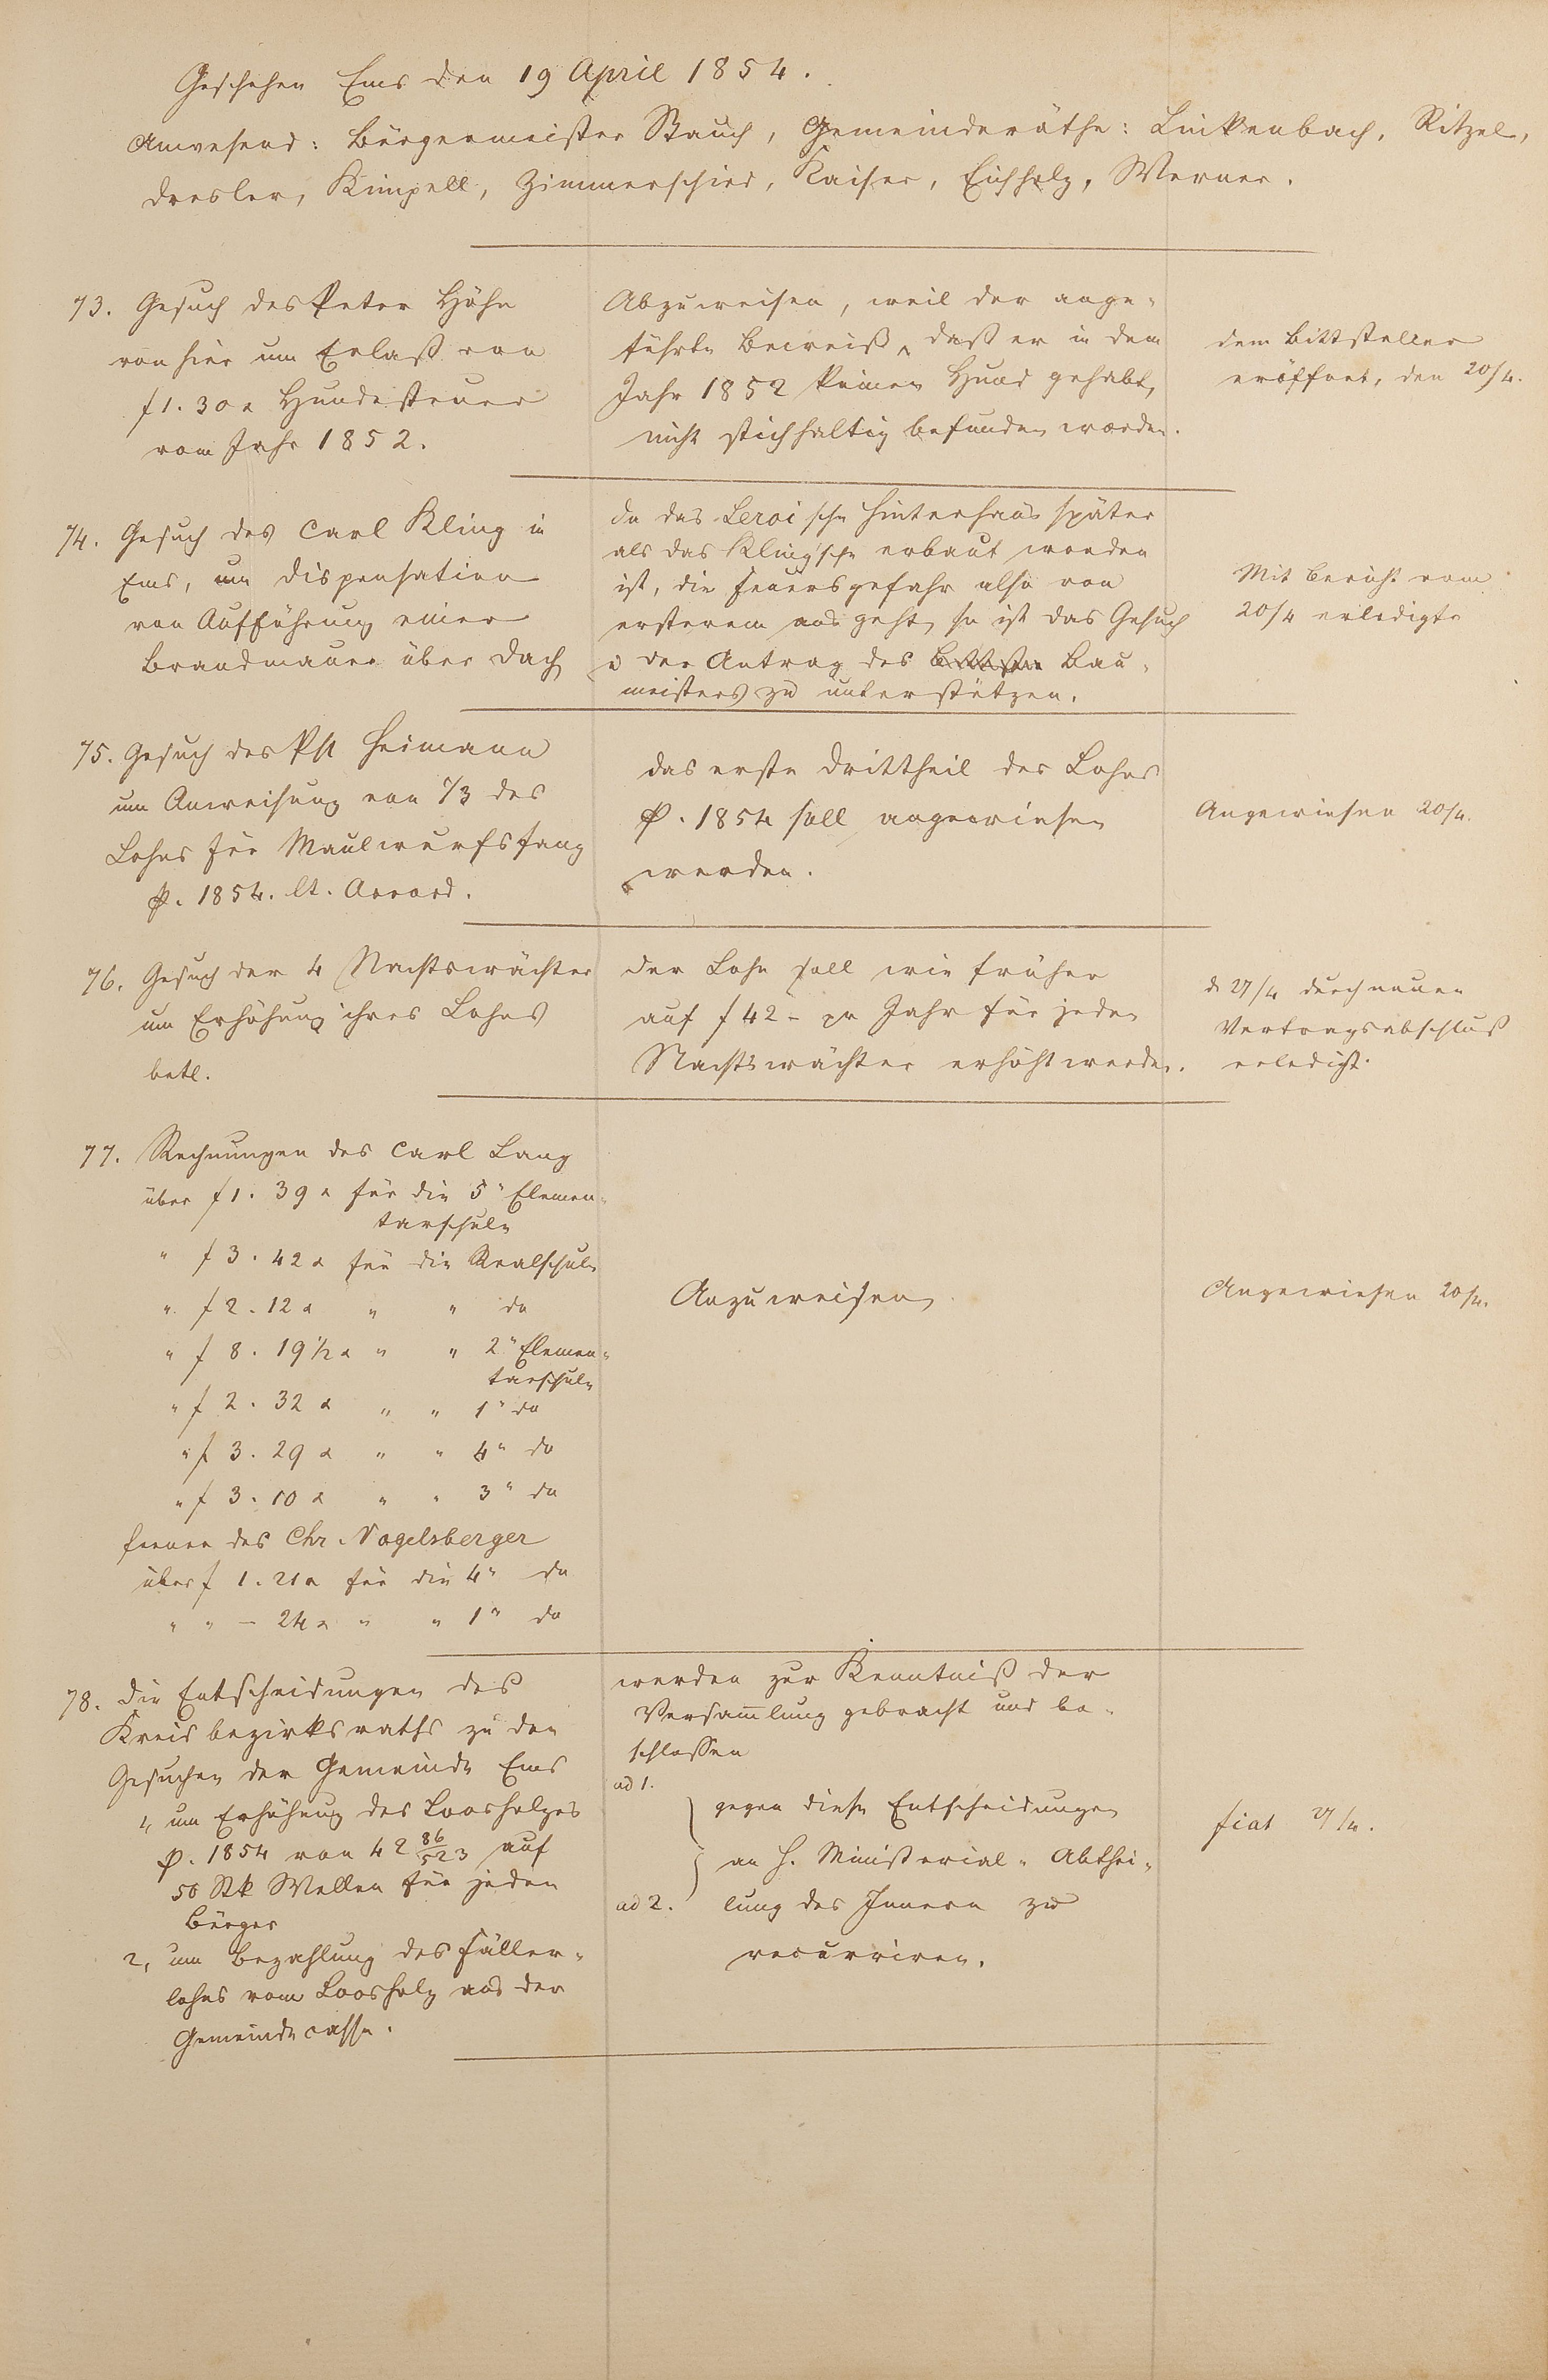 Geschehen Ems den 19 April 1854.
Anwesend: Bürgermeister Stauch, Gemeinderäthe: Linkenbach, Ritzel,
Dresler, Kimpell, Zimmerschied, Kaiser, Eichholz, Werner.
73. Gesuch des Peter Höhn
von hier um Erlaß von
f 1. 30 x Hundesteuer
vom Jahr 1852.
Abzuweisen, weil der ange-
führte Beweiß, daß er in dem
Jahr 1852 keinen Hund gehabt,
nicht stichhaltig befunden worden.
dem Bittsteller
eröffnet, den 20/4.
74. Gesuch des Carl Kling in
Ems, um Dispensation
von Aufführung einer
Brandmauer über Dach
Da das Leroi'sche Hinterhaus später
als das Kling'sche erbaut worden
ist, die Feuersgefahr also von
ersterem aus geht, so ist das Gesuch
u der Antrag des Bittste Bau-
meisters zu unterstützen.
Mit Bericht vom
20/4 erledigt
75. Gesuch des Phl Heimann
um Anweisung von 1/3 des
Lohns für Maulwurfsfang
p. 1854. lt. Accord.
Das erste Drittheil des Lohns
p. 1854 soll angewiesen
werden.
Angewiesen 20/4.
76. Gesuch der 4 Nachtswächter
um Erhöhung ihres Lohns
betl.
Der Lohn soll wie früher
auf f 42 - pr Jahr für jeden
Nachtswächter erhöht werden.
d 27/4 durch neuen
Vertragsabschluß
erledigt.
77. Rechnungen des Carl Lang
über f 1. 39 x für die 5" Elemen-
tarschule
" f 3. 42 x für die Realschule
" f 2. 12 x " " do
" f 8. 19 1/2 x " " 2" Elemen-
tarschule
" f 2. 32 x " " 1" do
" f 3. 29 x " " 4" do
" f 3. 10 x " " 3" do
ferner des Chr. Vogelsberger
über f 1. 21 x für die 4" do
" " - 24 x " " 1" do
Anzuweisen
Angewiesen 20/4.
78. Die Entscheidungen des
Kreisbezirksraths zu den
Gesuchen der Gemeinde Ems
1, um Erhöhung des Loosholzes
p. 1854 von 42 86/523 auf
50 Stk Wellen für jeden
Bürger
2, um Bezahlung des Fäller-
lohns vom Loosholz aus der
Gemeindecasse.
werden zur Kenntniß der
Versammlung gebracht und be-
schlossen
ad 1.
gegen diese Entscheidungen
an H. Ministerial-Abthei-
ad 2. lung des Innern zu
recurriren.
fiat 27/4.